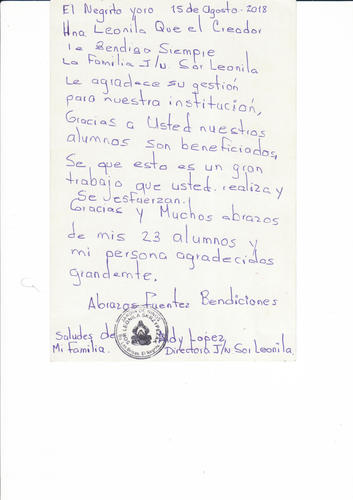 El Negrito yoro 15 de Agosto - 2018
Hna Leonila Que el Creador
le Bendiga Siempre
La Familia J/N. Sor Leonila
Le agradece su gestión
para nuestra institución,
Gracias a Usted nuestros
alumnos son beneficiados,
Se que esto es un gran
trabajo que usted. realiza y
Se esfuerzan!
Gracias y Muchos abrazos
de mis 23 alumnos y
mi persona agradecidos
grandemte.
Abrazos Fuentes Bendiciones
Saludes de Aldy Lopez
Mi Familia. Directora J/N Sor Leonila.